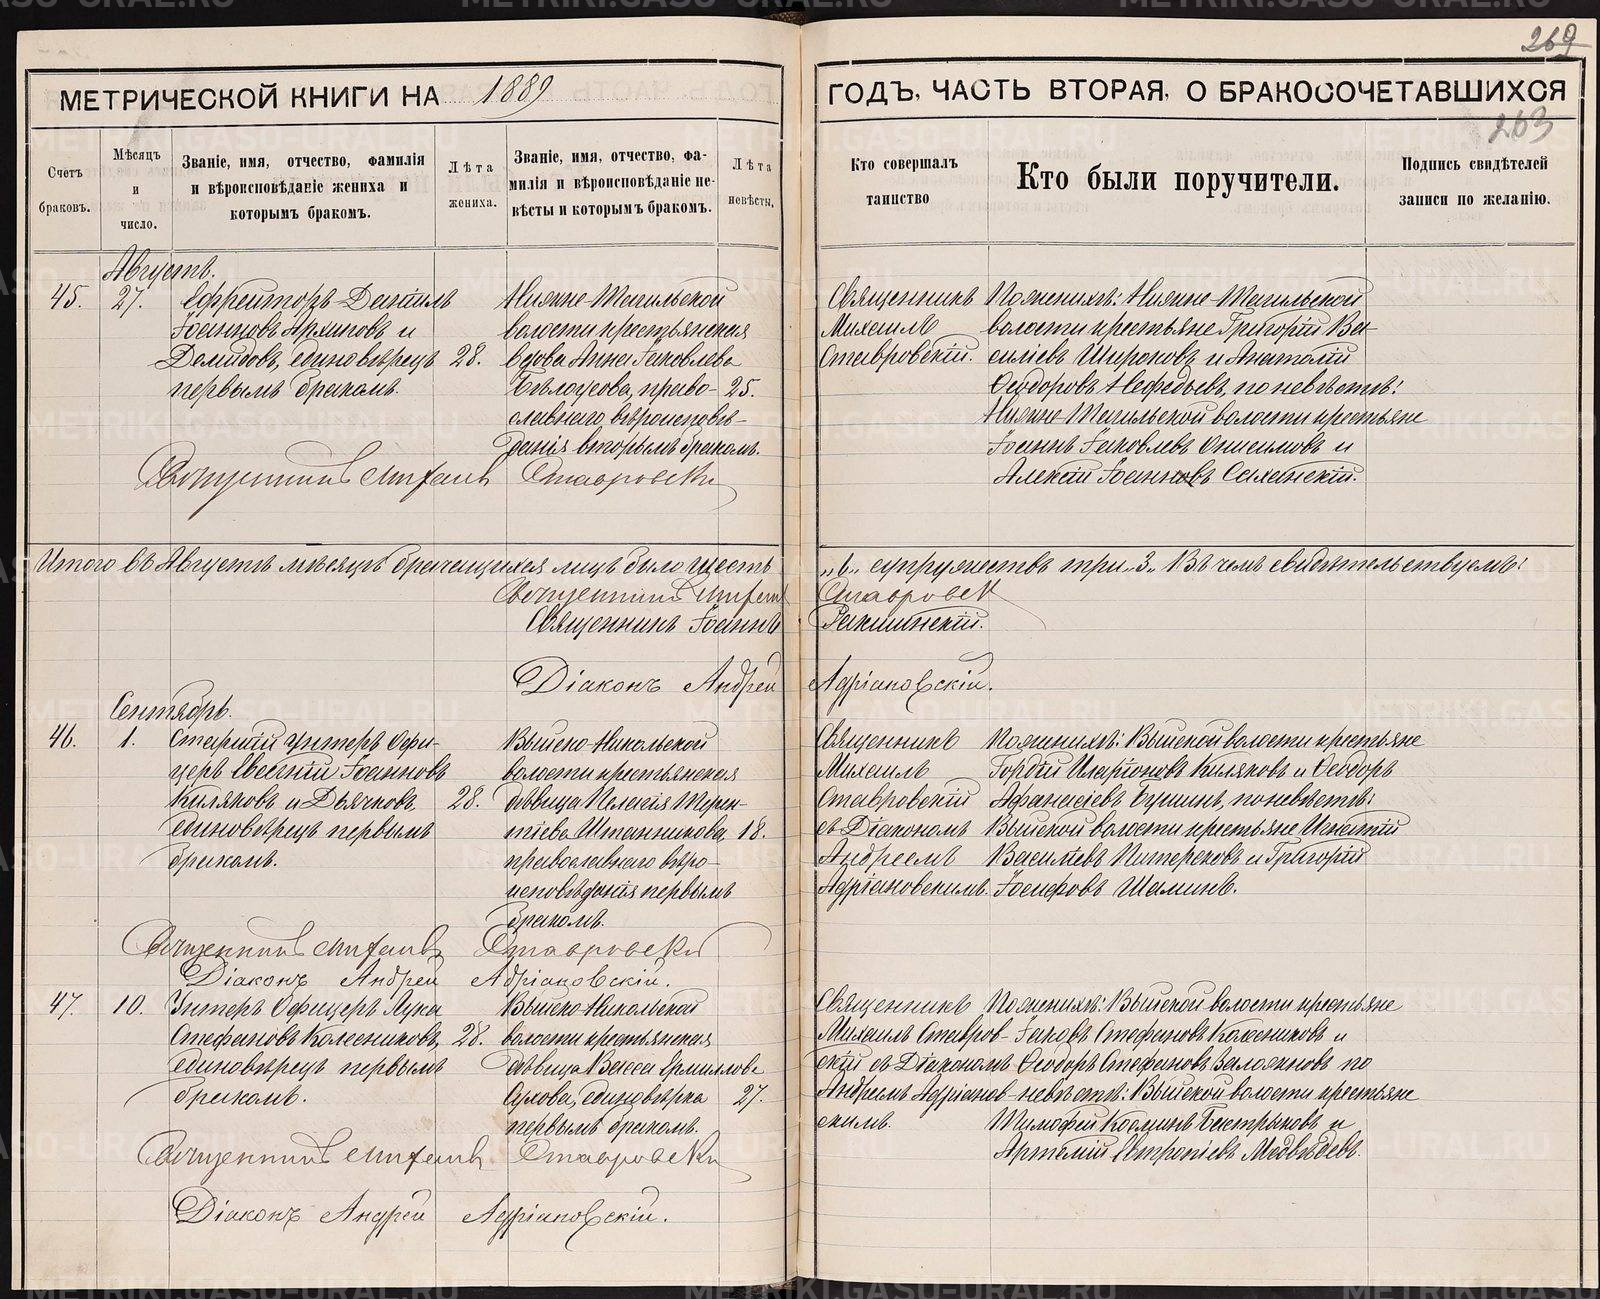 269
МЕТРИЧЕСКОЙ КНИГИ НА 1889
ГОДЪ, ЧАСТЬ ВТОРАЯ, О БРАКОСОЧЕТАВШИХСЯ
263
Счетъ браковъ.
Мѣсяцъ и число.
Званіе, имя, отчество, фамилія и вѣроисповѣданіе жениха и которымъ бракомъ.
Лѣта жениха.
Званіе, имя, отчество, фамилія и вѣроисповѣданіе невѣсты и которымъ бракомъ.
Лѣта невѣсты.
Кто совершалъ таинство
Кто были поручители.
Подпись свидѣтелей записи по желанію.
Августъ.
45.
27.
Ефрейторъ Даніилъ
Іоанновъ Архиповъ и
Демидовъ, единовѣрецъ
первымъ бракомъ.
28.
Нижне-Тагильской
волости крестьянская
вдова Анна Іаковлева
Бѣлоусова, право-
славнаго вѣроисповѣ-
данія вторымъ бракомъ.
25.
Священникъ
Михаилъ
Ставровскій.
По женихѣ: Нижне-Тагильской
волости крестьяне Григорій Ва-
силіевъ Широковъ и Анатолій
Ѳеодоровъ Нефедьевъ, по невѣстѣ:
Нижне-Тагильской волости крестьяне
Іоаннъ Іаковлевъ Онисимовъ и
Алексій Іоанновъ Саханскій.
Священникъ Михаилъ Ставровскій
Итого въ Августѣ мѣсяцѣ брачащихся лицъ было шесть
„6„ супружествъ три „3„ Въ чемъ свидѣтельствуемъ:
Священникъ Михаилъ Ставровскій
Священникъ Іоаннъ
Діаконъ Андрей Адріановскій.
Сентябрь.
46.
1.
Старшій Унтеръ Офи-
церъ Евгеній Іоанновъ
Киляковъ и Дьячковъ,
единовѣрецъ первымъ
бракомъ.
28.
Выйско-Никольской
волости крестьянская
дѣвица Пелагія Терен-
тіева Штанникова,
православнаго вѣро-
исповѣданія первымъ
бракомъ.
18.
Священникъ
Михаилъ
Ставровскій
съ Діакономъ
Андреемъ
Адріановскимъ.
По женихѣ: Выйской волости крестьяне
Гордій Иларіоновъ Киляковъ и Ѳеодоръ
Афанасіевъ Бушинъ, по невѣстѣ:
Выйской волости крестьяне Игнатій
Василіевъ Питерсковъ и Григорій
Іосифовъ Шаминъ.
Священникъ Михаилъ Ставровскій
Діаконъ Андрей Адріановскій.
47.
10.
Унтеръ Офицеръ Лука
Стефановъ Колесниковъ,
единовѣрецъ первымъ
бракомъ.
28.
Выйско-Никольской
волости крестьянская
дѣвица Васса Ермилова
Орлова, единовѣрка
первымъ бракомъ.
27.
Священникъ
Михаилъ Ставров-
скій съ Діакономъ
Андреемъ Адріанов-
скимъ.
По женихѣ: Выйской волости крестьяне
Іаковъ Стефановъ Колесниковъ и
Ѳеодоръ Стефановъ Заложновъ по
невѣстѣ: Выйской волости крестьяне
Тимофей Косминъ Быстрыковъ и
Артемій Евтропіевъ Медвѣдевъ.
Священникъ Михаилъ Ставровскій
Діаконъ Андрей Адріановскій.
METRIKI.GASO-URAL.RU